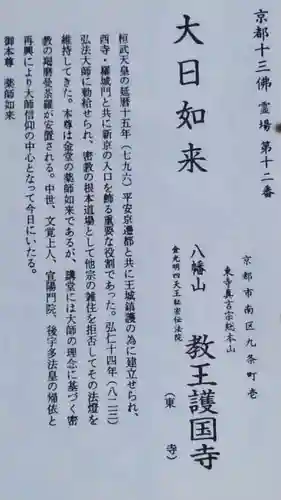 京都十三佛霊場第十二番
大日如来
京都市南区九条町壱
東寺真言宗総本山
八幡山 教王護国寺
金光明四天王秘密伝法院
（東寺）
桓武天皇の延暦十五年（七九六）平安京遷都と共に王城鎮護の為に建立せられ、
西寺・羅城門と共に新京の入口を飾る重要な役割であった。弘仁十四年（八二三）
弘法大師に勅給せられ、密教の根本道場として他宗の雑住を拒否してその法燈を
維持してきた。本尊は金堂の薬師如来であるが、講堂には大師の理念に基づく密
教の羯磨曼荼羅が安置される。中世、文覚上人、宣陽門院、後宇多法皇の帰依と
再興により大師信仰の中心となって今日にいたる。
御本尊 薬師如来